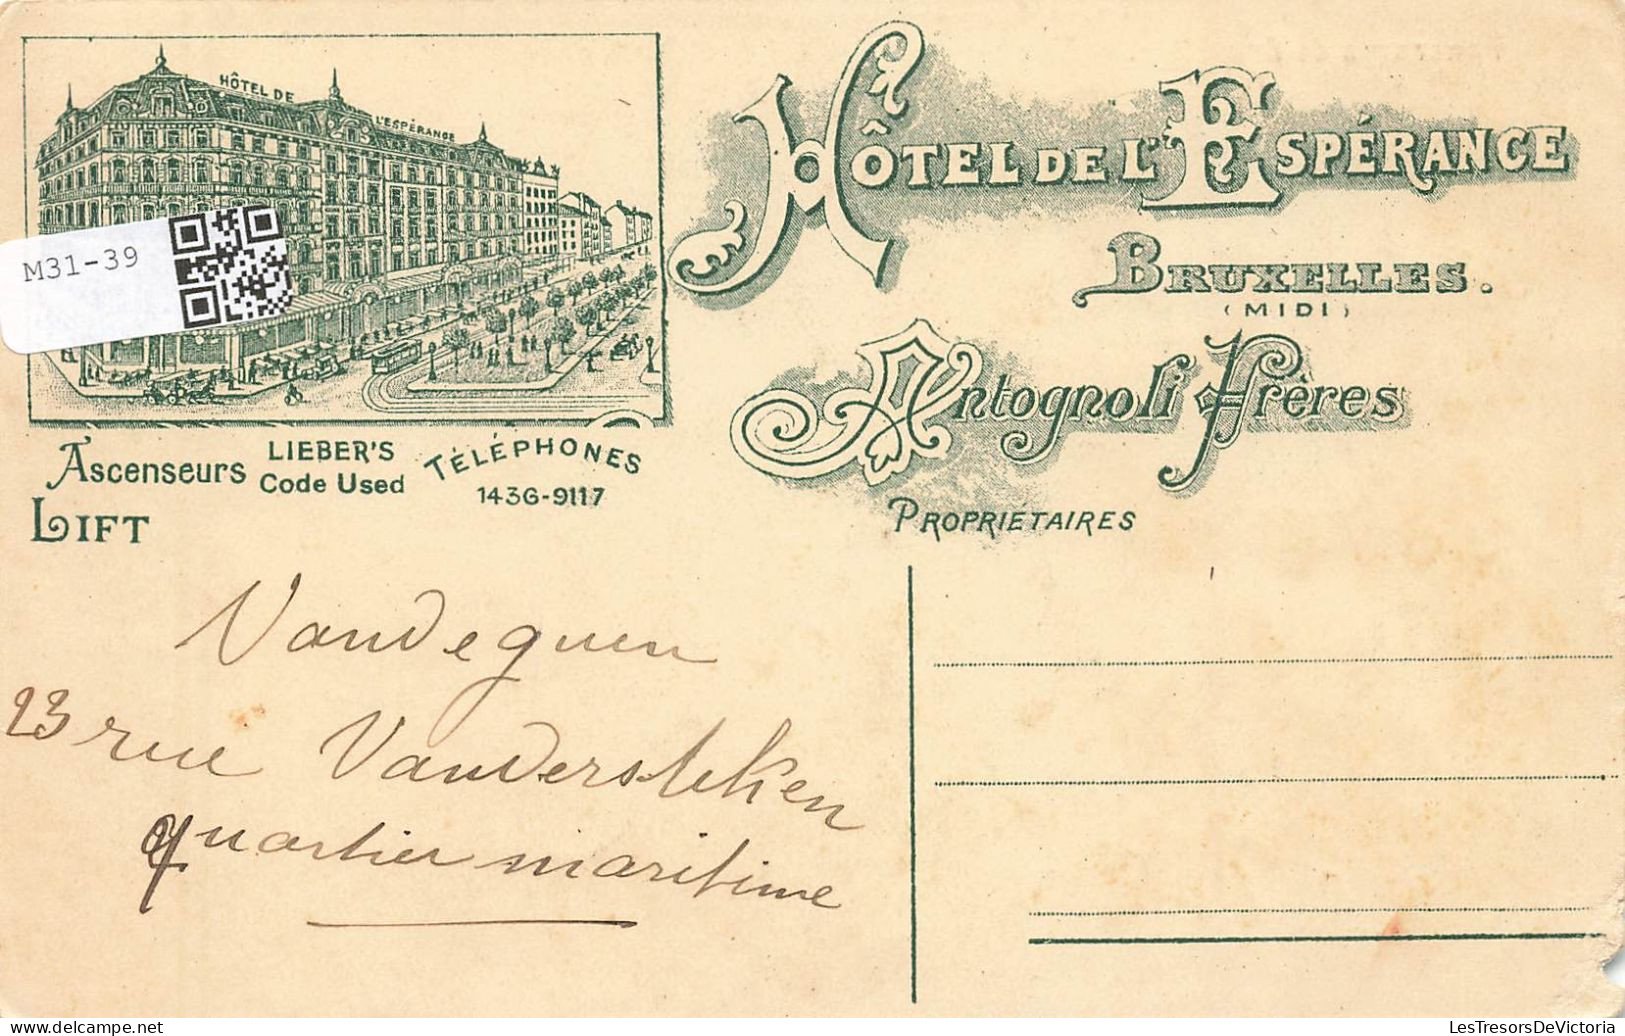 HÔTEL DE L'ESPÉRANCE
M31-39
HÔTEL DE L'ESPÉRANCE
BRUXELLES.
(MIDI)
Antognoli Frères
PROPRIÉTAIRES
ASCENSEURS
LIFT
LIEBER'S
Code Used
TÉLÉPHONES
1436-9117
Vandeguen
23 rue Vandersteken
quartier maritime
LesTresorsDeVictoria